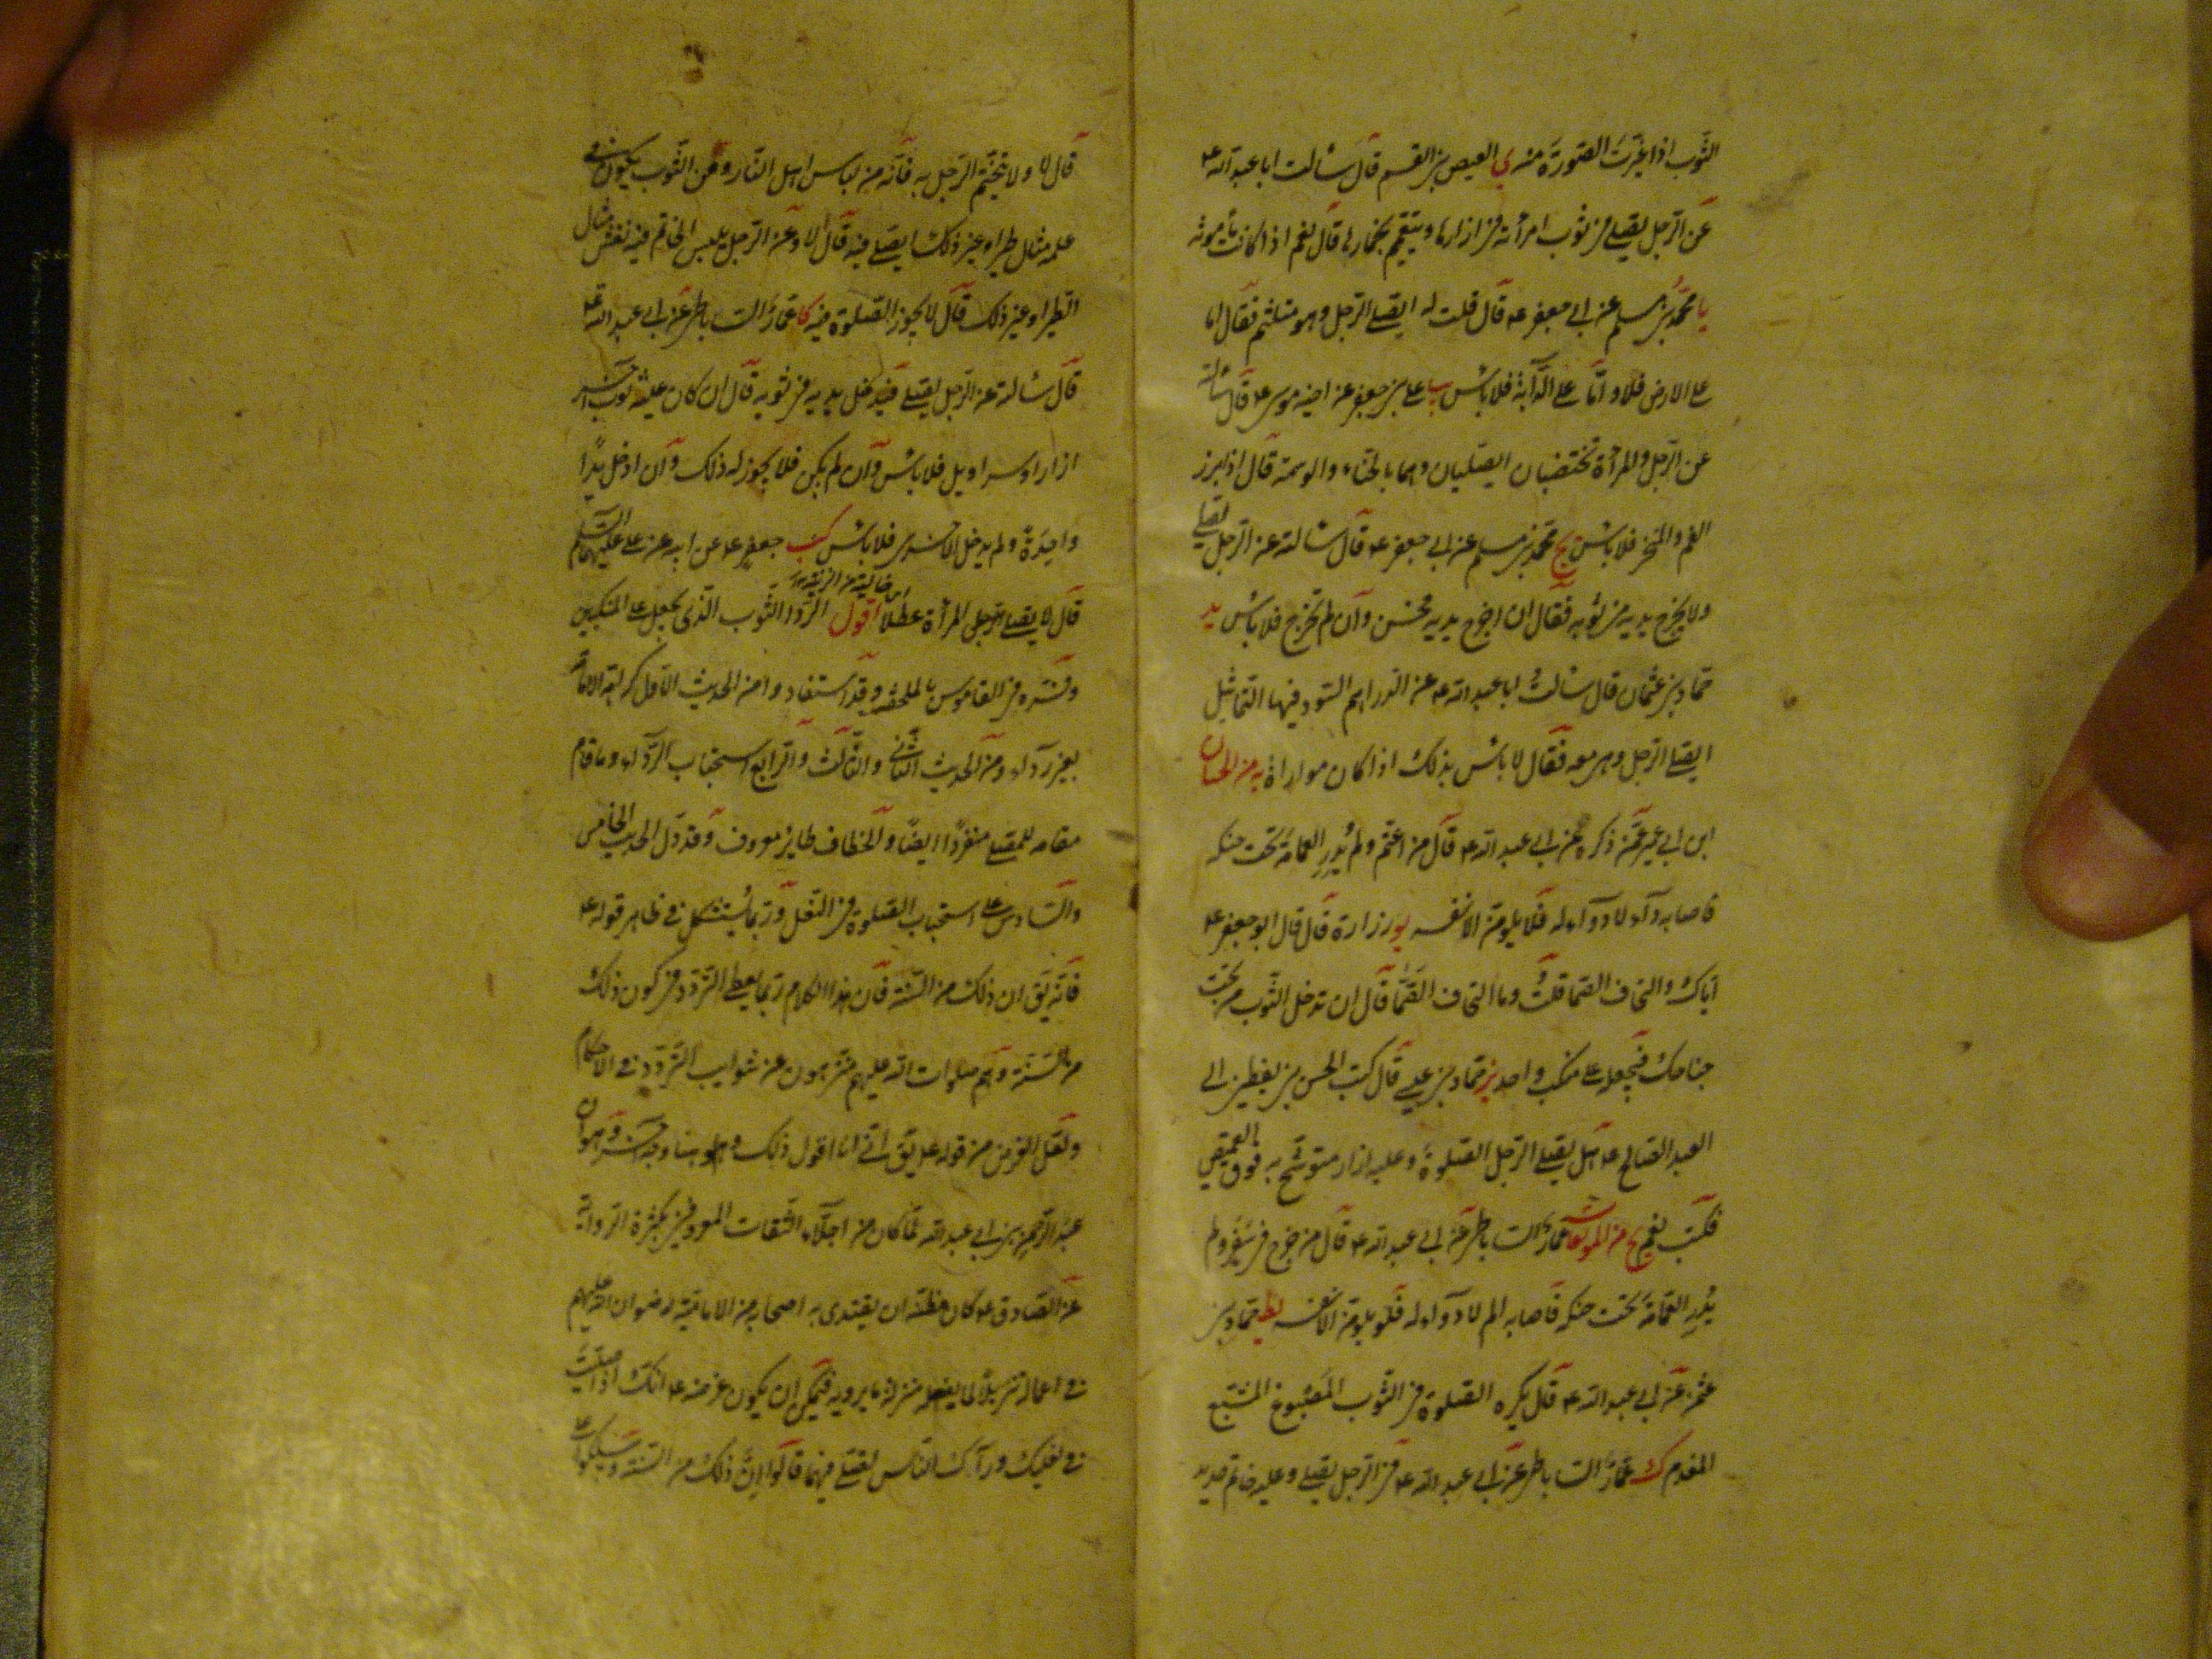 الثوب اذا غيرت الصورة منه ى العيص بن القسم قال سالت ابا عبد الله ع
عن الرجل يصلي في ثوب امراته وفي ازارها ويتعمم بخمارها قال نعم اذا كانت مامونة
يا محمد بن مسلم عن ابي جعفر ع قال قلت له ايصلي الرجل وهو متلثم فقال اما
على الارض فلا واما على الدابة فلا باس يب علي بن جعفر عن اخيه موسى ع قال سالته
عن الرجل والمراة يختضبان ايصليان وهما بالحناء والوسمة قال اذا ابرز
الفم والمنخر فلا باس يج محمد بن مسلم عن ابي جعفر ع قال سالته عن الرجل يصلي
ولا يخرج يديه من ثوبه فقال ان اخرج يديه فحسن وان لم يخرج فلا باس يد
حماد بن عثمان قال سالت ابا عبد الله ع عن الدراهم السود فيها التماثيل
ايصلي الرجل وهي معه فقال لا باس بذلك اذا كان مواراة يه من الحسان
ابن ابي عمير عمن ذكره عن ابي عبد الله ع قال من اعتم ولم يدر العمامة تحت حنكه
فاصابه داء لا دواء له فلا يلومن الا نفسه يو زرارة قال قال ابو جعفر ع
اياك والتحاف الصما قلت وما التحاف الصما قال ان تدخل الثوب من تحت
جناحك فتجعل على منكب واحد يز حماد بن عيسى قال كتب الحسن بن يقطين الى
العبد الصالح ع هل يصلي الرجل الصلوة وعليه ازار متوشح به فوق القميص
فكتب نعم يح من الموثقات عمار الساباطي عن ابي عبد الله ع قال من خرج في سفر ولم
يدر العمامة تحت حنكه فاصابه الم لا دواء له فلا يلومن الا نفسه يط حماد بن
عثمن عن ابي عبد الله ع قال يكره الصلوة في الثوب المصبوغ المشبع
المفدم ك عمار الساباطي عن ابي عبد الله ع في الرجل يصلي وعليه خاتم حديد
قال لا ولا يتختم الرجل به فانه من لباس اهل النار وعن الثوب يكون في
علمه مثال طير او غير ذلك ايصلي فيه قال لا وعن الرجل يلبس الخاتم فيه نقش مثال
الطير او غير ذلك قال لا يجوز الصلوة فيه كا عمار الساباطي عن ابي عبد الله ع
قال سالته عن الرجل يصلي فيدخل يديه في ثوبه قال ان كان عليه ثوب اخر
ازار او سراويل فلا باس وان لم يكن فلا يجوز له ذلك وان ادخل يدا
واحدة ولم يدخل الاخرى فلا باس كب جعفر ع عن ابيه عن علي عليهم السلم
اى خالية من الزينة
قال لا يصلي المراة عطلا اقول الردا الثوب الذي يجعل على المنكبين
وفسره في القاموس بالملحفة وقد استفادوا من الحديث الاول كراهة الامامة
بغير رداء ومن الحديث الثاني والثالث والرابع استحباب الرداء وما قام
مقامه للمصلي منفردا ايضا والخطاف طاير معروف وقد دل الحديث الخامس
والسادس على استحباب الصلوة في النعل وربما يستشكل في ظاهر قوله ع
فانه يق ان ذلك من السنة فان هذا الكلام ربما يعطي التردد في كون ذلك
من السنة وهم صلوات الله عليهم منزهون عن شوايب التردد في الاحكام
ولعل الغرض من قوله ع يق اني انا اقول ذلك وههنا وجه اخر وهو ان
عبد الرحمن بن ابي عبد الله لما كان من اجلاء الثقات المعروفين بكثرة الرواية
عن الصادق ع وكان مظنة ان يقتدى به اصحابه من الامامية رضوان الله عليهم
في اعماله تنزيلا لما يفعله منزلة ما يرويه فيمكن ان يكون غرضه ع انك اذا صليت
في نعليك وراك الناس تصلي فيهما قالوا ان ذلك من السنة